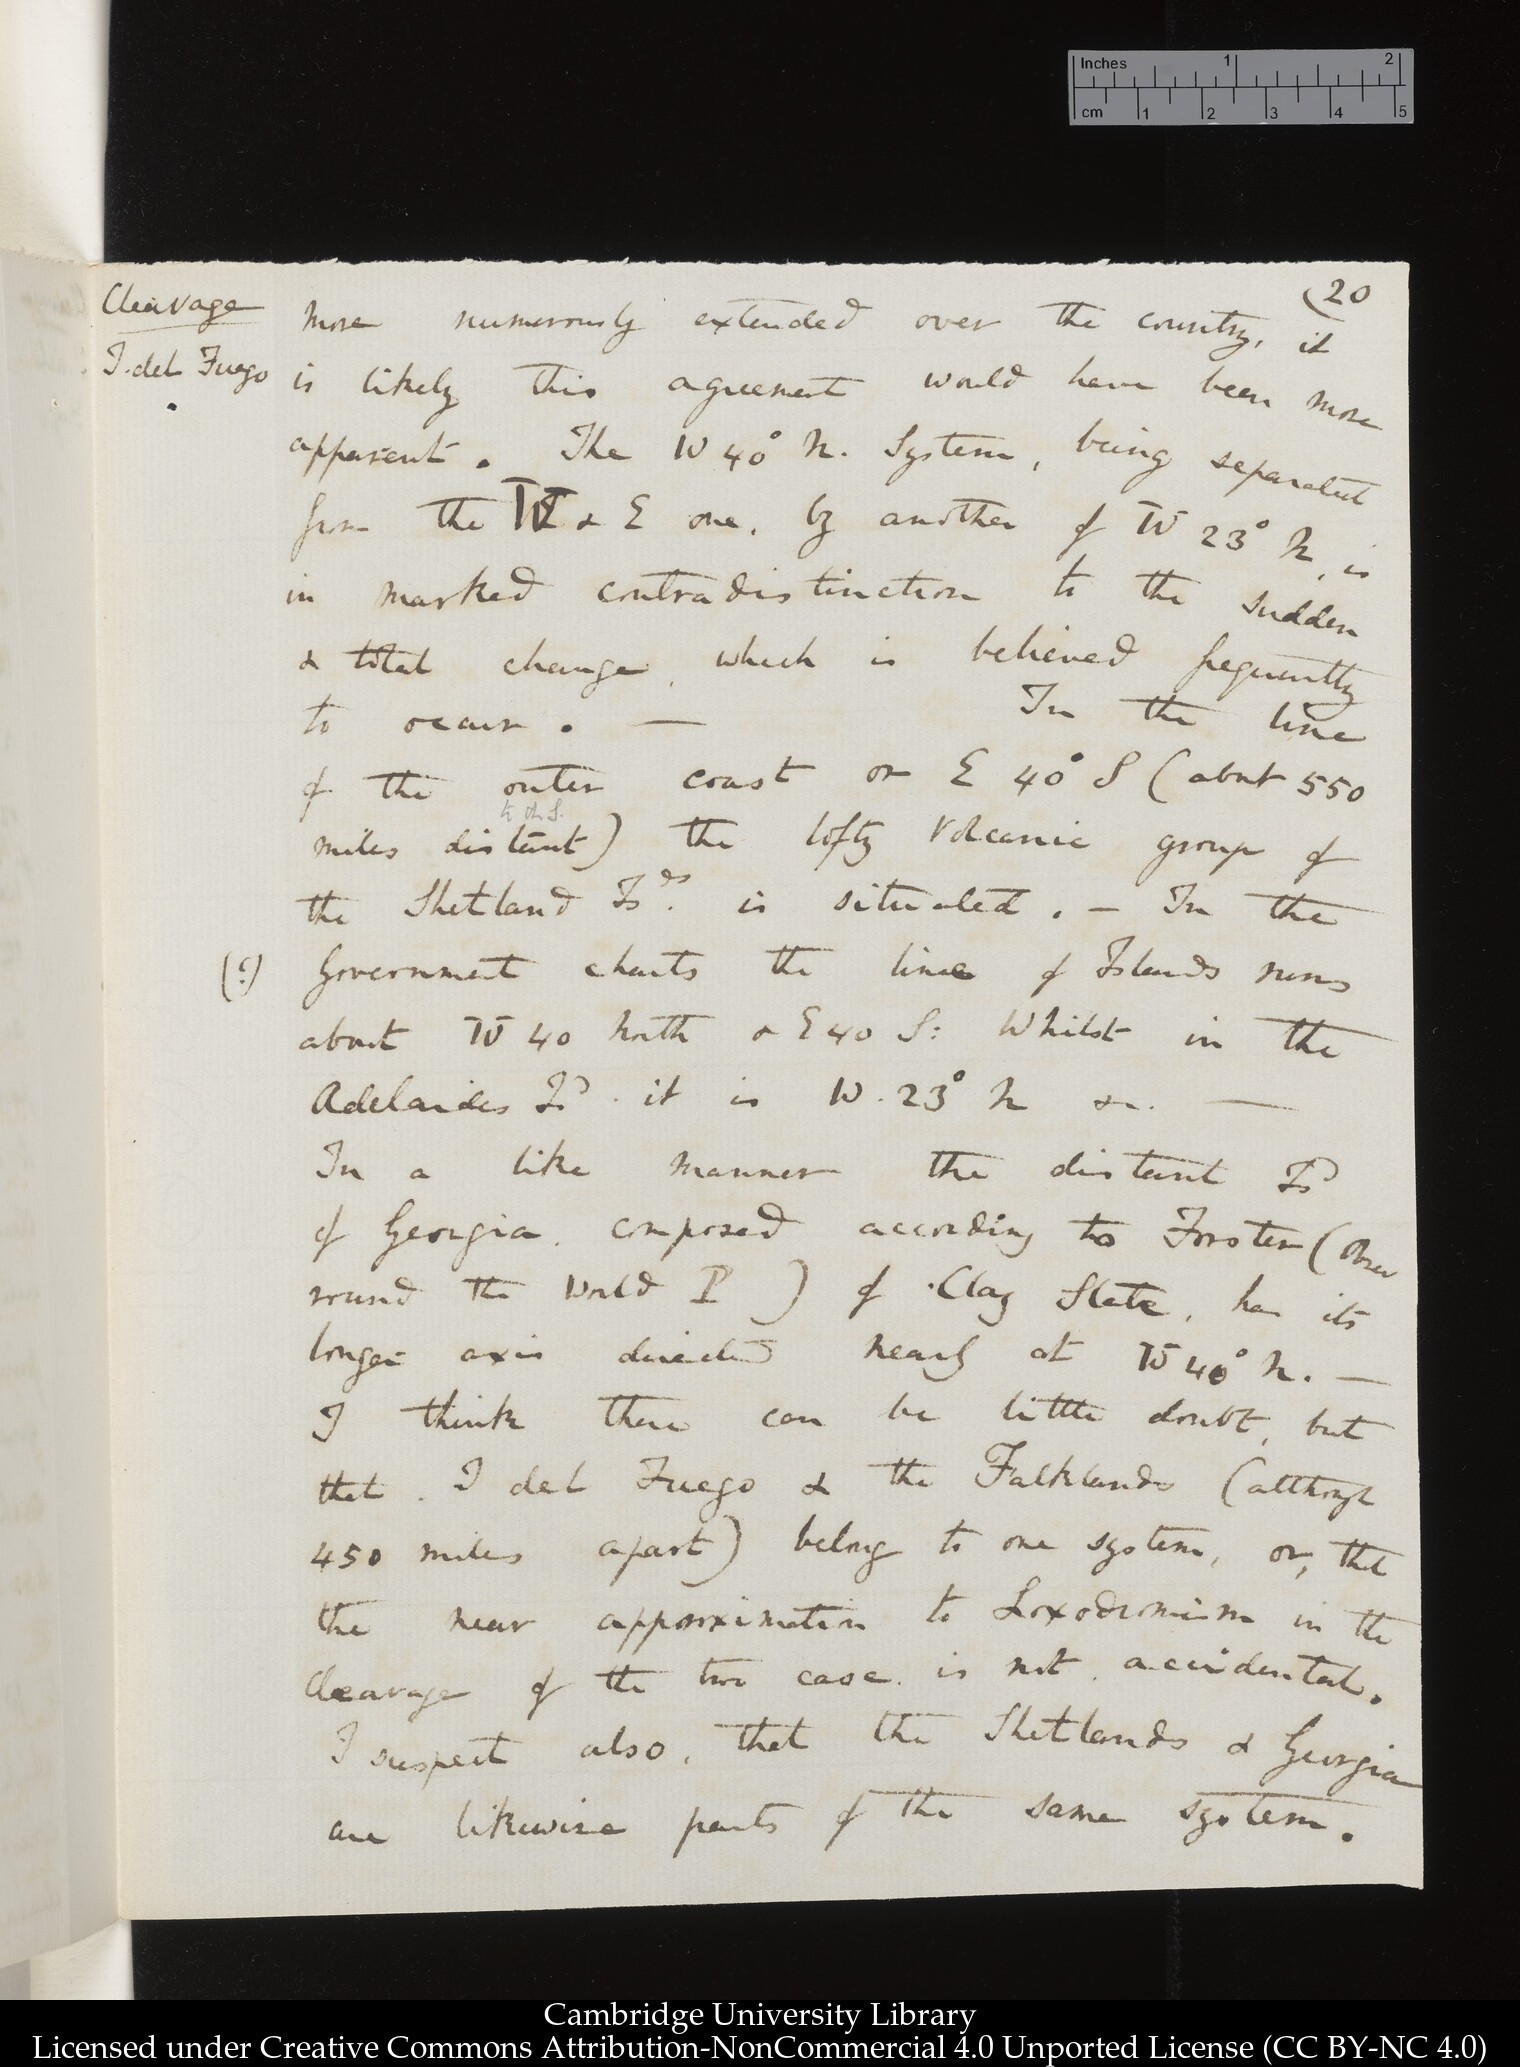 Inches 1 2
cm 1 2 3 4 5
(20
Cleavage
T. del Fuego
more numerously extended over the country, it
is likely this agreement would have been more
apparent. The W 40° N. System, being separated
from the W & E one, by another of W 23° N, is
in marked contradistinction to the sudden
& total change, which is believed frequently
to occur. — In the line
of the outer coast or E 40° S (about 550
to the S.
miles distant) the lofty Volcanic group of
the Shetland Isds. is situated. — In the
(?)
Government charts the line of Islands runs
about W 40 North & E 40 S: Whilst in the
Adelaides Isd. it is W. 23° N &c. —
In a like manner the distant Isd
of Georgia, composed according to Forster (Obser
round the World P ) of Clay Slate, has its
longer axis directed nearly at W 40° N. —
I think there can be little doubt, but
that. T del Fuego & the Falklands (although
450 miles apart) belong to one system, or, that
the near approximation to Loxodromism in the
Cleavage of the two case. is not. accidental.
I suspect also, that the Shetlands & Georgia
are likewise parts of the same system.
Cambridge University Library
Licensed under Creative Commons Attribution-NonCommercial 4.0 Unported License (CC BY-NC 4.0)